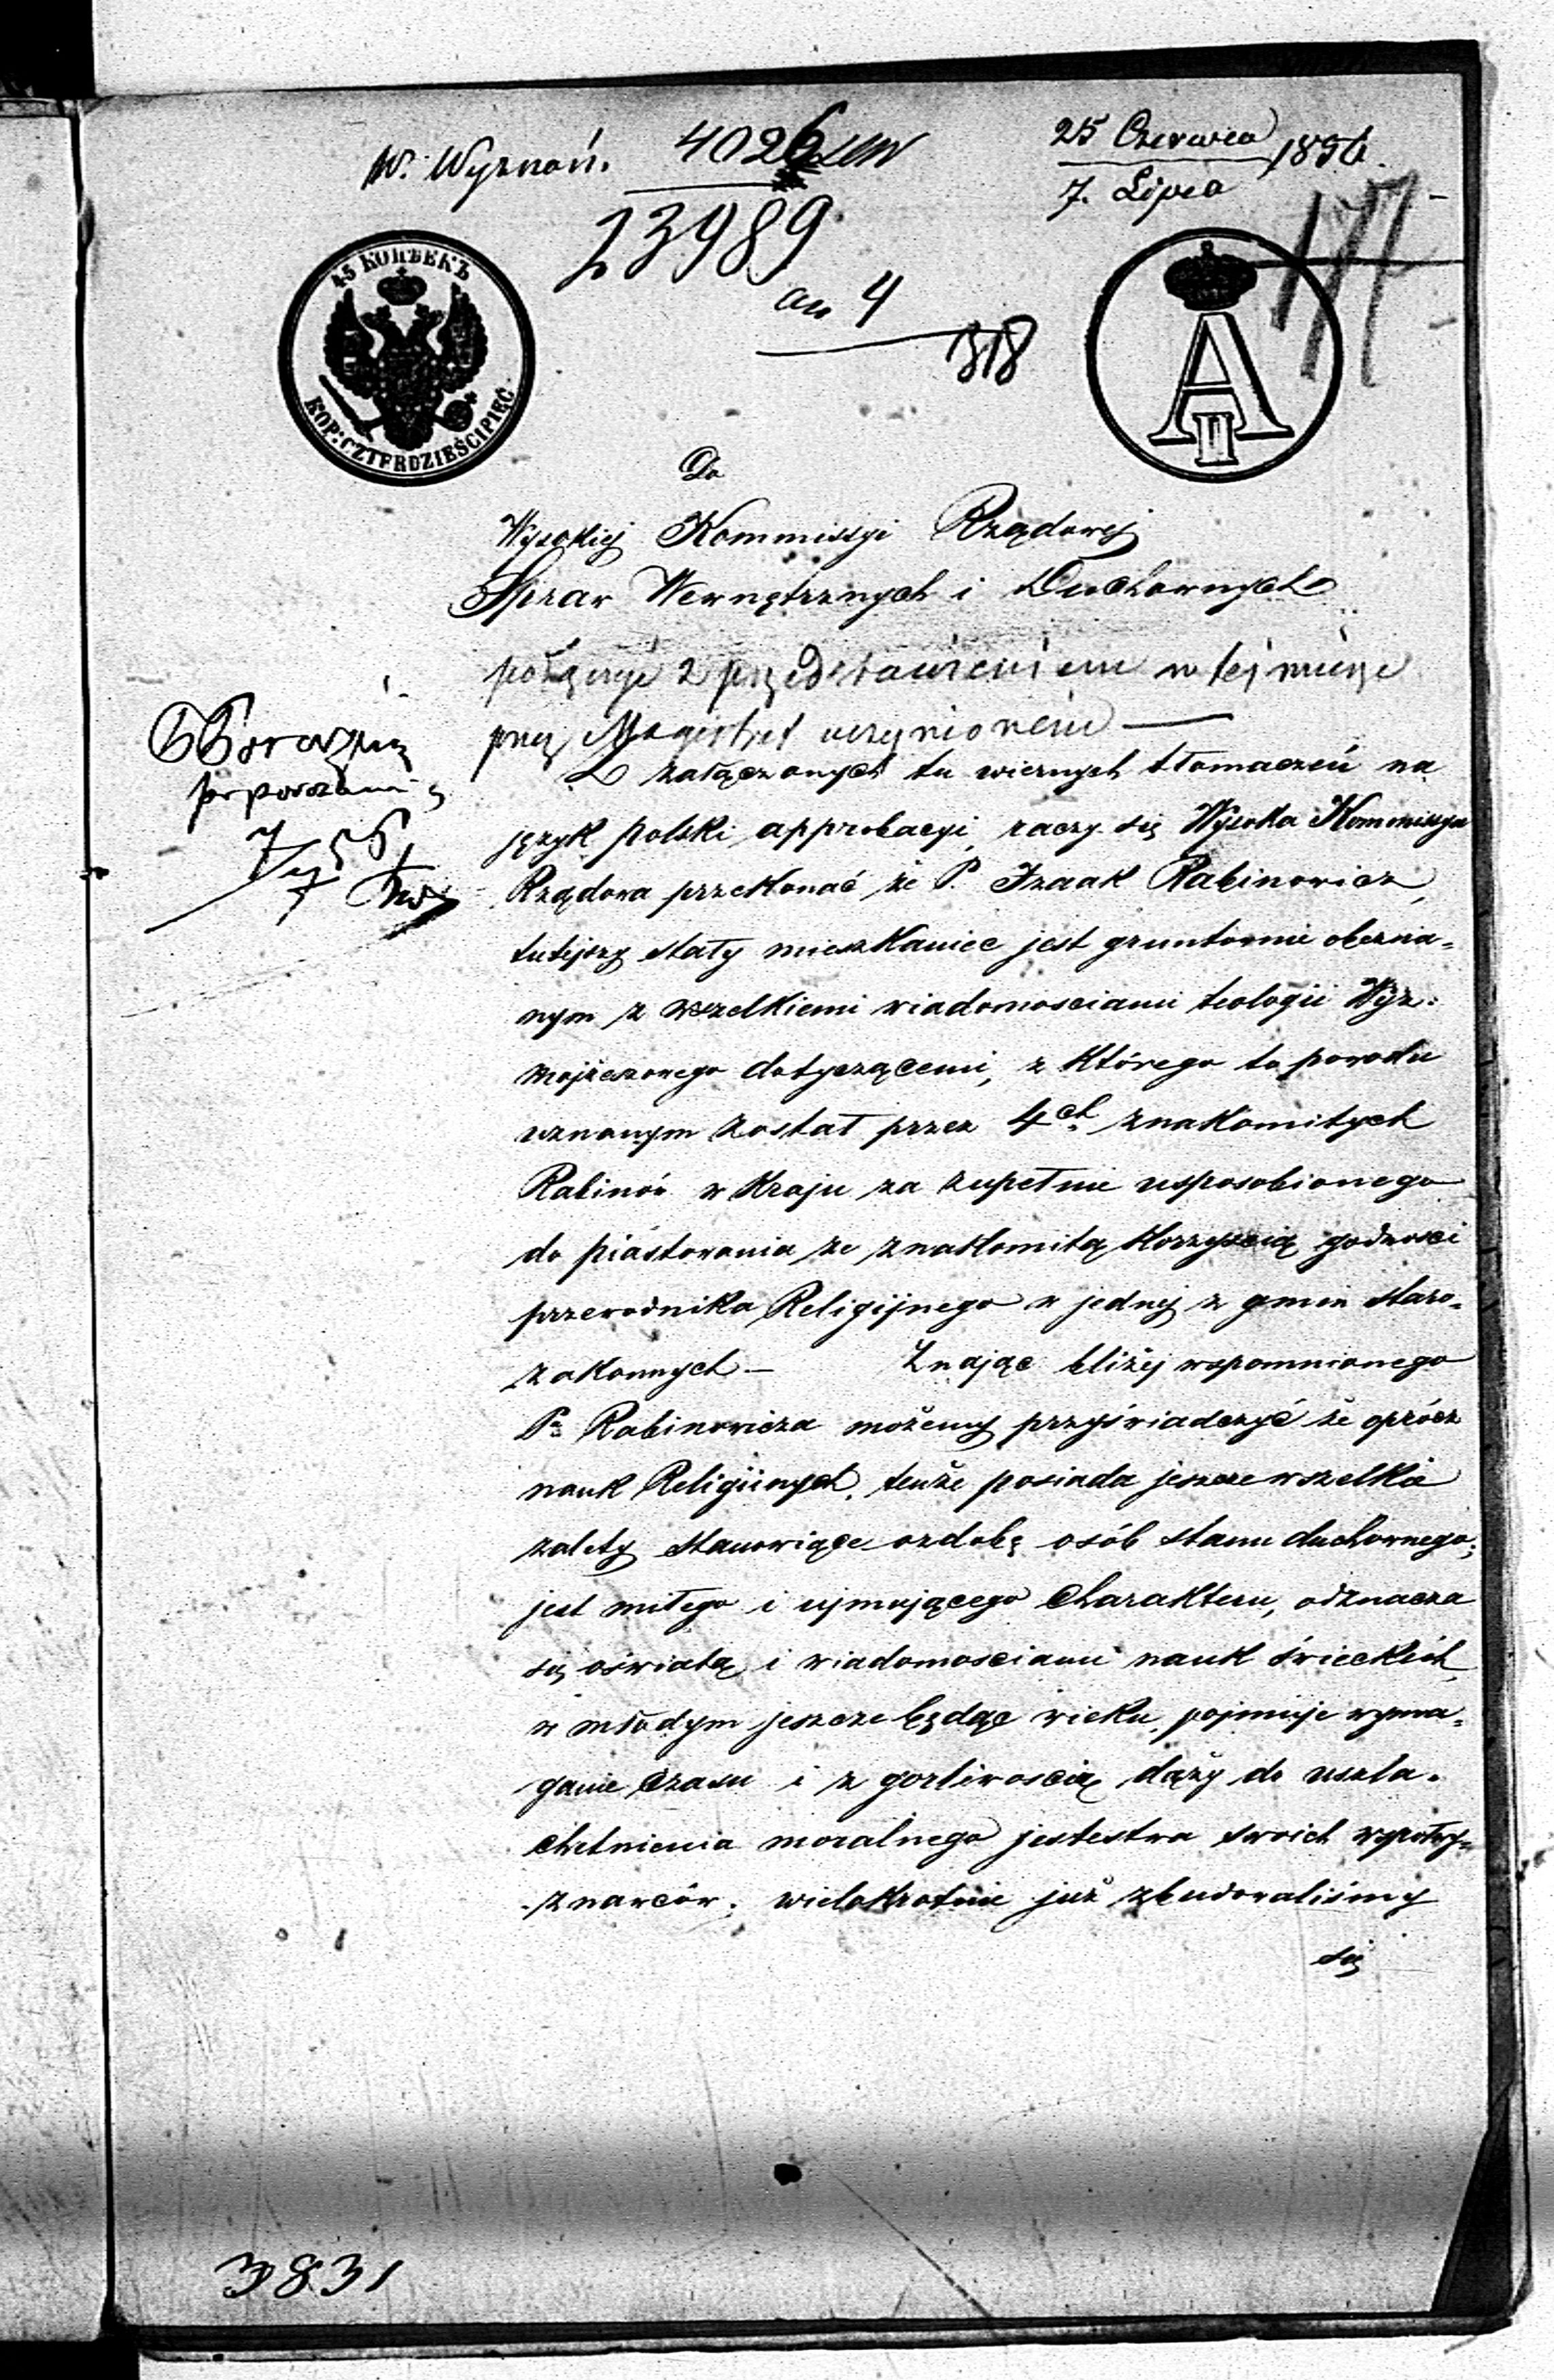 W. Wyznań. 4026
25 Czerwca
7. Lipca 1856.
177
23989
an 4
318
45 КОПѢЕКЪ
KOP: CZTERDZIEŚCI PIĘĆ.
A II
Do
Wysokiej Kommissyi Rządowej
Spraw Wewnętrznych i Duchownych
połączyć z przedstawieniem w tej mierze
przez Magistrat uczynionem —
Z załączonych tu wiernych tłomaczeń na
język polski approbacyi, raczy się Wysoka Kommissya
Rządowa przekonać że P. Izaak Rabinowicz,
tutejszy stały mieszkaniec jest gruntownie obezna=
nym z wszelkiemi wiadomosciami teologii Wyz:
mojżeszowego dotyczącemi, z którego to powodu
uznanym został przez 4ch znakomitych
Rabinów w Kraju za zupełnie usposobionego
do piastowania ze znakomitą korzyscią godnosci
przewodnika Religijnego w jednej z gmin staro=
zakonnych — Znając bliżej wspomnionego
Pa Rabinowicza możemy przyświadczyć że oprócz
nauk Religiinych, tenże posiada jeszcze wszelkie
zalety stanowiące ozdobę osób stanu duchownego;
jest miłego i ujmującego Charakteru, odznacza
się oświatą i wiadomosciami nauk świeckich,
w młodym jeszcze będąc wieku, pojmuje wyma=
ganie czasu i z gorliwoscią dąży do uszla=
chetnienia moralnego jestestwa swoich wspołwy=
znawców; wielokrotnie już zbudowaliśmy
się
3831